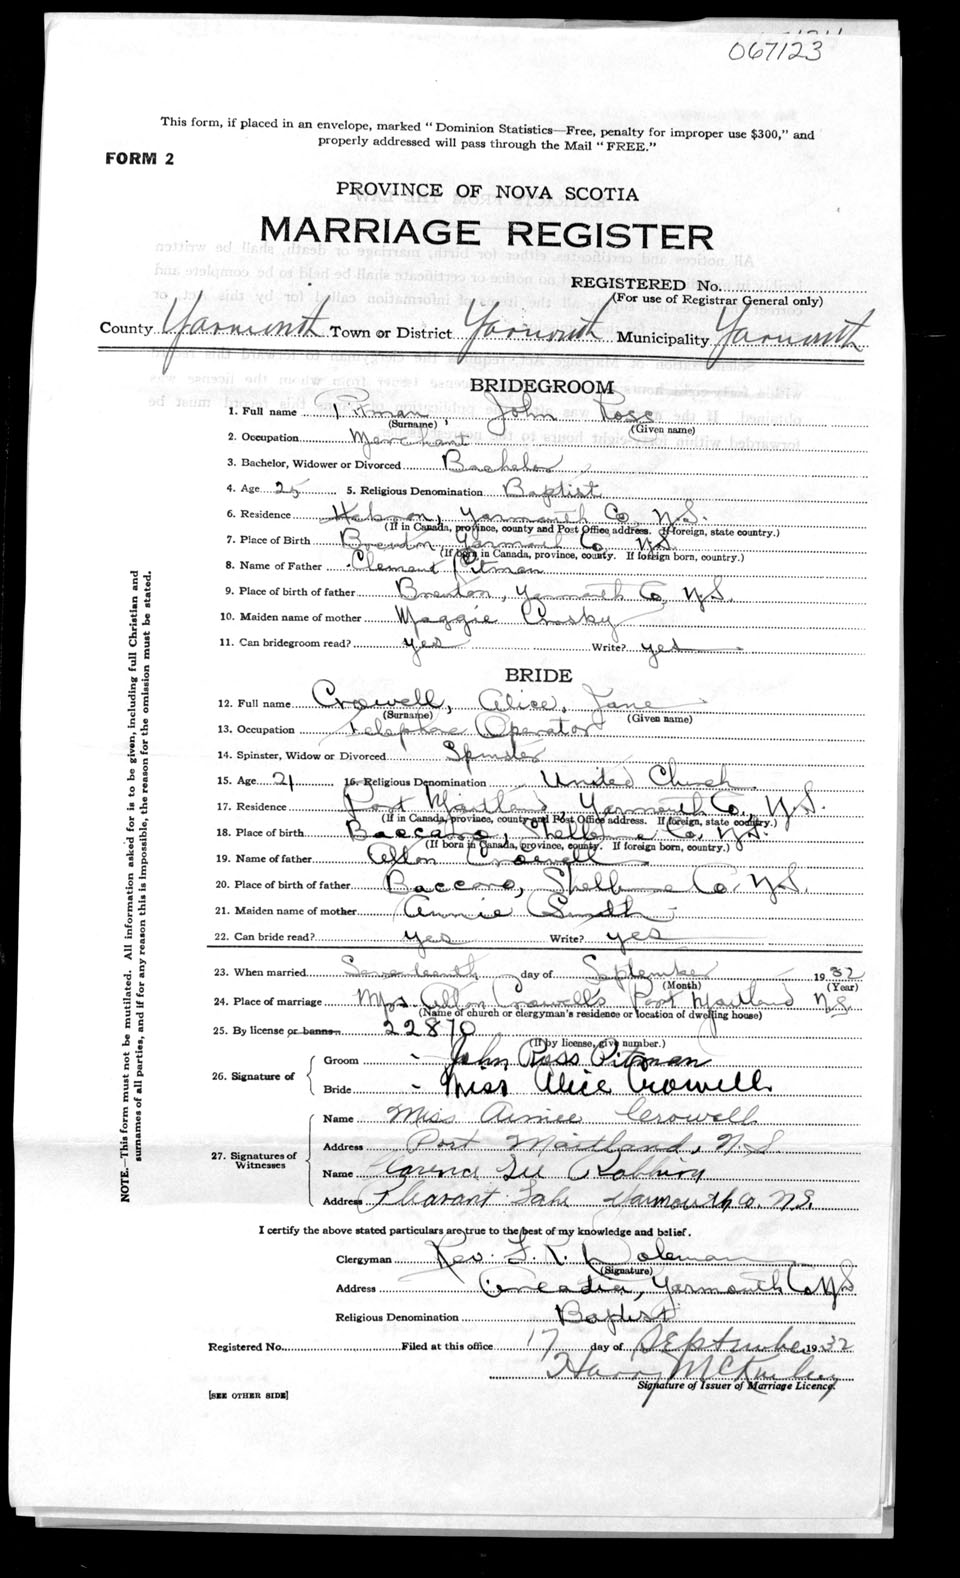 067123
This form, if placed in an envelope, marked "Dominion Statistics—Free, penalty for improper use $300," and
properly addressed will pass through the Mail "FREE."
FORM 2
PROVINCE OF NOVA SCOTIA
MARRIAGE REGISTER
REGISTERED No.
(For use of Registrar General only)
County Yarmouth Town or District Yarmouth Municipality Yarmouth
BRIDEGROOM
1. Full name Pitman, John Ross
(Surname) (Given name)
2. Occupation Merchant
3. Bachelor, Widower or Divorced Bachelor
4. Age 25 5. Religious Denomination Baptist
6. Residence Hebron, Yarmouth Co, N.S.
(If in Canada, province, county and Post Office address. If foreign, state country.)
7. Place of Birth Brenton Yarmouth Co N.S.
(If born in Canada, province, county. If foreign born, country.)
8. Name of Father Clement Pitman
9. Place of birth of father Brenton, Yarmouth Co, N.S.
10. Maiden name of mother Maggie Crosby
11. Can bridegroom read? yes Write? yes
BRIDE
12. Full name Crowell, Alice, Jane
(Surname) (Given name)
13. Occupation Telephone Operator
14. Spinster, Widow or Divorced Spinster
15. Age 21 16. Religious Denomination United Church
17. Residence Port Maitland, Yarmouth Co., N.S.
(If in Canada, province, county and Post Office address. If foreign, state country.)
18. Place of birth Baccaro, Shelburne Co, N.S.
(If born in Canada, province, county. If foreign born, country.)
19. Name of father Crowell
20. Place of birth of father Baccaro, Shelburne Co. N.S.
21. Maiden name of mother Annie Smith
22. Can bride read? yes Write? yes
23. When married Seventeenth day of September 1932
(Month) (Year)
24. Place of marriage Mrs. Crowell's Port Maitland N.S.
(Name of church or clergyman's residence or location of dwelling house)
25. By license or banns 22870
(If by license, give number.)
26. Signature of
Groom John Ross Pitman
Bride Miss Alice Crowell
27. Signatures of Witnesses
Name Miss Aimee Crowell
Address Port Maitland, N.S.
Name Clarence Lee Robbins
Address Pleasant Lake Yarmouth Co. N.S.
I certify the above stated particulars are true to the best of my knowledge and belief.
Clergyman Rev.
(Signature)
Address Arcadia, Yarmouth Co N.S
Religious Denomination Baptist
Registered No. Filed at this office 17 day of September 1932
Harry McKinley
Signature of Issuer of Marriage Licence.
[SEE OTHER SIDE]
NOTE.—This form must not be mutilated. All information asked for is to be given, including full Christian and
surnames of all parties, and if for any reason this is impossible, the reason for the omission must be stated.